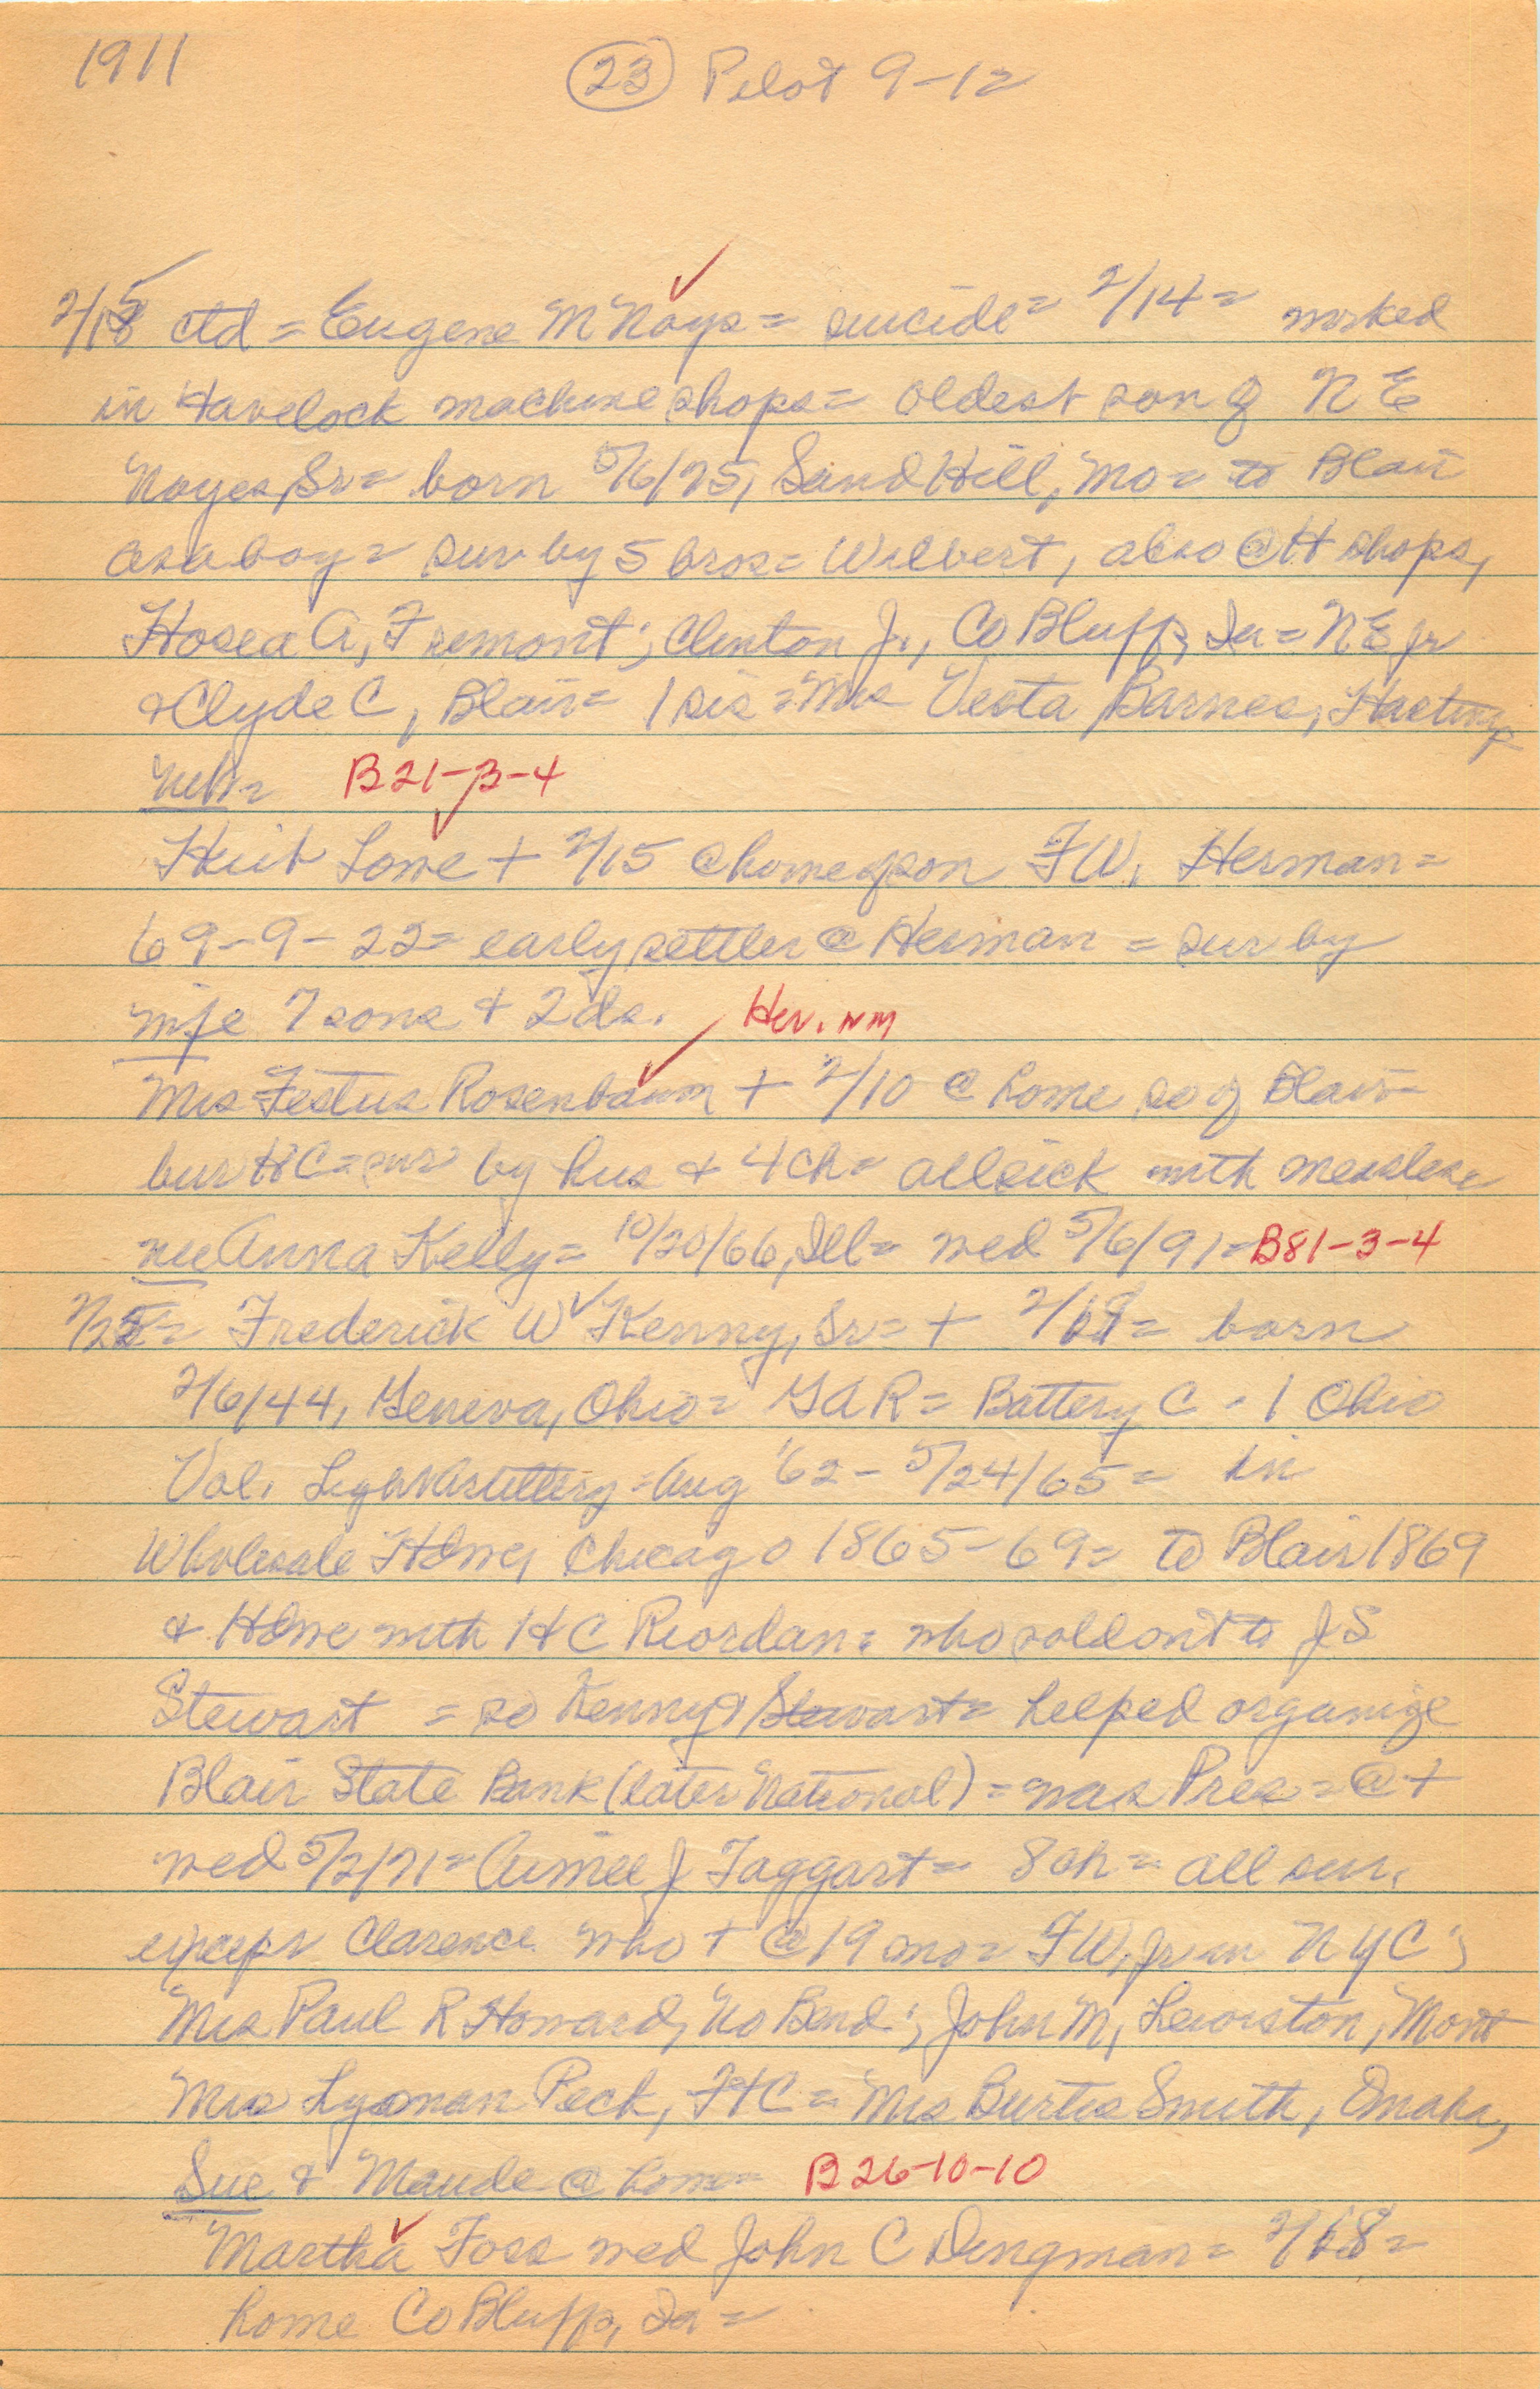 1911
(23) Pilot 9-12
2/15 ctd = Eugene M Noys = suicide = 2/14 = worked
in Havelock machine shops = oldest son of N E
Noyes, Sr = born 5/6/75, Sand Hill, Mo = to Blair
as a boy = sur by 5 bros = Wilbert, also @ H shops,
Hosea A, Fremont; Clinton J., Co Bluffs, Ia = N E Jr
& Clyde C, Blair = 1 sis = Mrs Vesta Barnes, Hastings
Neb = B21-B-4
Lowe + 2/15 @ home of son FW, Herman =
69-9-22 = early settler @ Herman = sur by
wife 7 sons & 2 ds. Her. NM
Mrs Festus Rosenbaum + 2/10 @ home so of Blair =
bur HC = sur by hus & 4 ch = all sick with measles =
nee Anna Kelly = 10/20/66, Ill = wed 5/6/91 = B81-3-4
2/22 = Frederick W Kenny, Sr = + 2/18 = born
2/6/44, Geneva, Ohio = GAR = Battery C - 1 Ohio
Vol. Light Artillery = Aug '62 - 5/24/65 = in
Wholesale Hdwe, Chicago 1865-69 = to Blair 1869
& Hdwe with H C Riordan = who sold out to J S
Stewart = so Kenny & Stewart = helped organize
Blair State Bank (later National) = was Pres = @ +
wed 5/2/71 = Aimee J Taggart = 8 ch = all sur.
except Clarence who + @ 19 mo = FW, Jr in NYC;
Mrs Paul R Howard, No Bend; John M, Lewiston, Mont
Mrs Lyman Peck, FtC = Mrs Burtis Smith, Omaha,
Sue & Maude @ home = B26-10-10
Martha Foss wed John C Dingman = 2/18 =
home Co Bluffs, Ia =